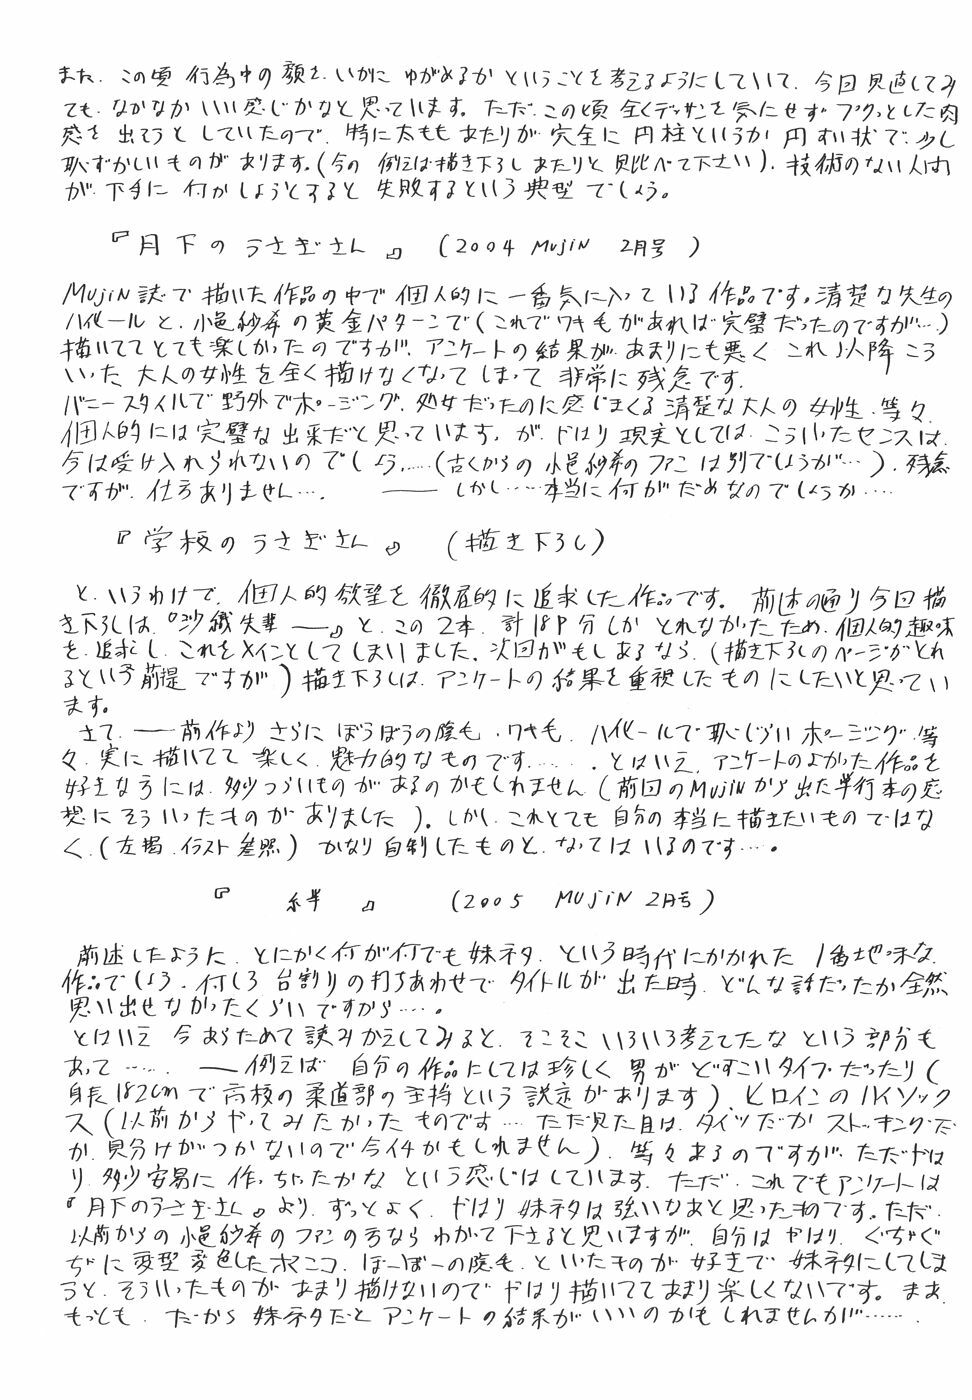 また、この頃 行為中の顔を、いかに ゆがめるか ということを考えるようにしていて、今回 見直してみ
ても、なかなか いい感じかなと思っています。ただ、この頃 全くデッサンを気にせず プクッとした肉
感を 出そうと していたので、特に太もも あたりが 完全に 円柱というか 円すい状で、少し
恥ずかしいものが あります。(今の 例えば描き下ろし あたりと、見比べて下さい)、技術のない人間
が、下手に 何かしようとすると 失敗するという 典型 でしょう。
『月下のうさぎさん』 (2004 MUJIN 2月号)
MUJIN誌で 描いた作品の中で 個人的に 一番気に入っている作品です。清楚な先生の
ハイヒールと、小邑紗希の黄金パターンで(これでワキ毛があれば完璧だったのですが…)
描いてて とても楽しかったのですが、アンケートの結果が、あまりにも悪く、これ以降 こう
いった 大人の女性を全く描けなくなってしまって 非常に残念です。
バニースタイルで 野外でポージング、処女だったのに感じまくる 清楚な大人の女性、等々、
個人的には 完璧な出来だと思っています。が、やはり 現実としては、こういったセンスは、
今は受け入れられないのでしょう……(古くからの 小邑紗希のファンは別でしょうが…)、残念
ですが、仕方ありません…。 ―― しかし……本当に何がだめなのでしょうか……
『学校のうさぎさん』 (描き下ろし)
と、いうわけで、個人的欲望を徹底的に追求した作品です。前述の通り今回描
き下ろしは、『沙織先輩 ――』と、この2本、計18P分しか とれなかったため、個人的趣味
を、追求し、これをメインとしてしまいました。次回がもしあるなら、(描き下ろしのページがとれ
るという前提 ですが)描き下ろしは、アンケートの 結果を重視したものにしたいと思ってい
ます。
さて、――前作より さらに ぼうぼうの陰毛、ワキ毛、ハイヒールで恥じらいポージング、等
々、実に描いてて 楽しく、魅力的なものです……。とはいえ、アンケートのよかった作品を
好きな方には、多少つらいものがあるのかもしれません(前回のMUJINから出た単行本の感
想にそういったものがありました)。しかし、これとても 自分の本当に描きたいもの ではな
く、(左掲 イラスト参照) かなり自制したものと、なってはいるのです…。
『 絆 』 (2005 MUJIN 2月号)
前述したように、とにかく何が何でも妹ネタ、という時代にかかれた 1番地味な
作品でしょう。何しろ 台割りの打ちあわせで タイトルが 出た時、どんな話だったか全然
思い出せなかったくらいですから…。
とはいえ 今 あらためて読みかえしてみると、そこそこ いろいろ考えてたな という部分も
あって……。――例えば 自分の作品にしては珍しく 男が どすこいタイプだったり(
身長182cmで高校の柔道部の主将という 設定があります)、ヒロインのハイソック
ス(以前からやってみたかった ものです… ただ見た目は、タイツだか ストッキングだ
か、見分けがつかないので今イチかもしれません)、等々あるのですが、ただやは
り、多少安易に 作っちゃったかな という感じはしています。ただ、これでもアンケートは
『月下のうさぎさん』より、ずっとよく、やはり 妹ネタは強いなあと思ったものです。ただ、
以前からの 小邑紗希のファンの方なら わかって下さると思いますが、自分は やはり、ぐちゃぐ
ちゃに 変型 変色した、ぼーぼーの陰毛、といったものが 好きで 妹ネタにしてしま
うと、そういったものが あまり描けないので やはり描いてて あまり 楽しくないです。まあ、
もっとも、だから 妹ネタだと アンケートの結果がいいのかもしれませんが……。